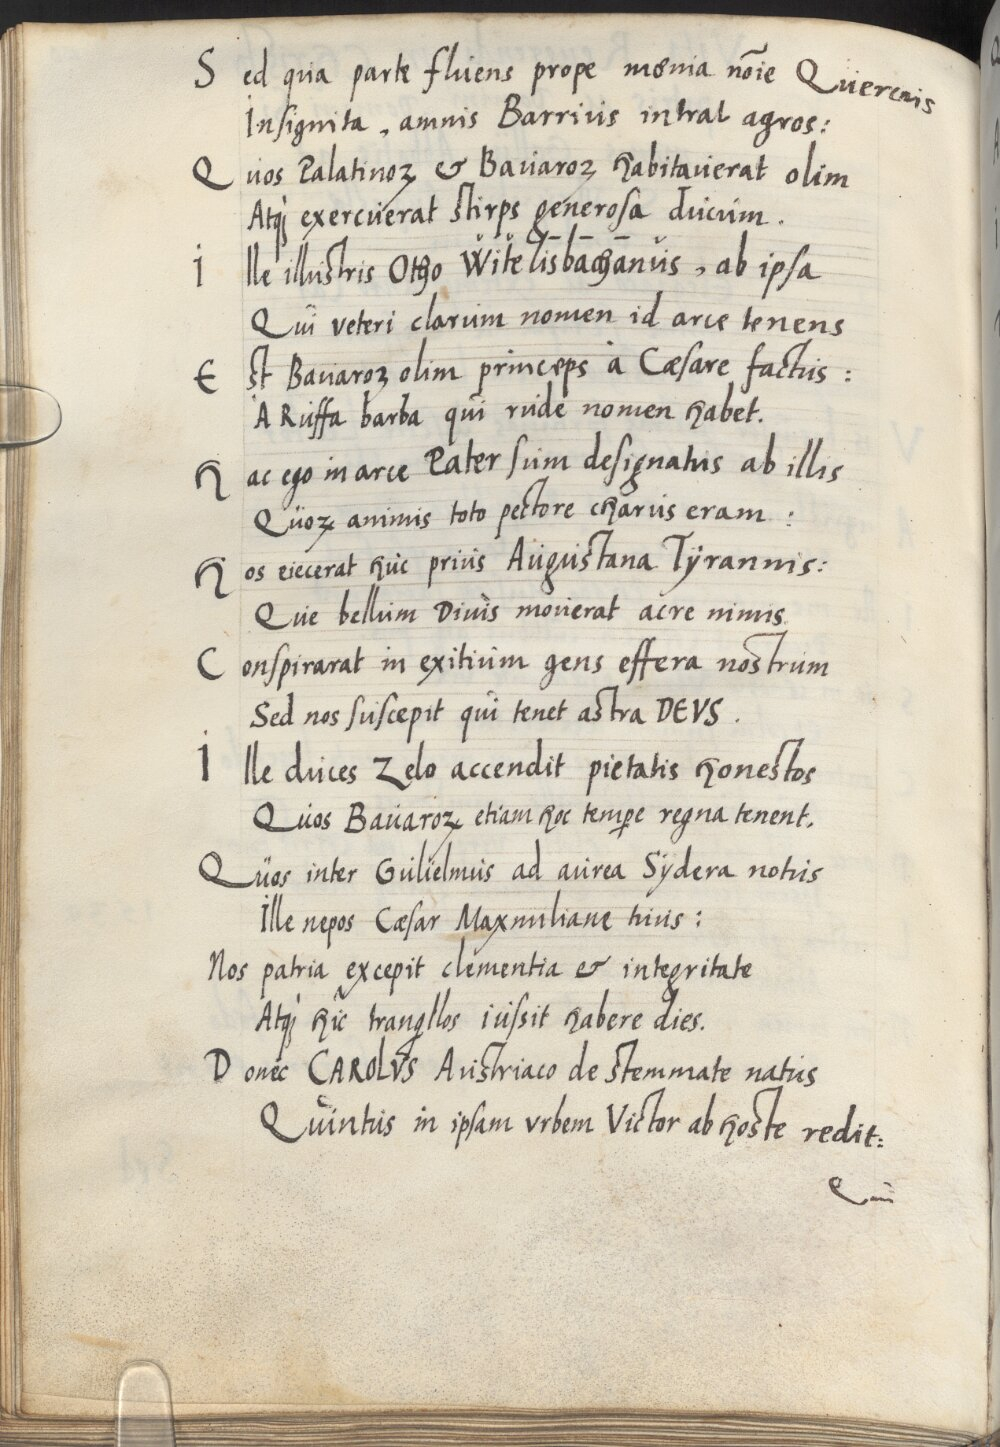 Sed qua parte fluens prope mœnia no̅ie Quercnis
Insignita, amnis Barrius intrat agros:
Quos Palatinoꝝ & Bauaroꝝ habitauerat olim
Atq́ꝫ exercuerat stirps generosa ducum.
Ille illustris Otho Witelisbachanus, ab ipsa
Qui veteri clarum nomen id arce tenens
Est Bauaroꝝ olim princeps à Cæsare factus:
A Ruffa barba qui rude nomen habet.
Hac ego in arce Pater sum designatus ab illis
Quoꝝ animis toto pectore charus eram:
Hos eiecerat huc prius Augustana Tyrannis:
Que bellum Diuis mouerat acre nimis
Conspirarat in exitium gens effera nostrum
Sed nos suscepit qui tenet astra DEVS.
Ille duces Zelo accendit pietatis honestos
Quos Bauaroꝝ etiam hoc tempe̲ regna tenent.
Quos inter Gulielmus ad aurea Sydera notus
Ille nepos Cæsar Maxmiliane tuus:
Nos patria excepit clementia & integritate
Atq́ꝫ hic tranqllos iussit habere dies.
Donec CAROLVS Austriaco de stemmate natus
Quintus in ipsam vrbem Victor ab hoste redit: